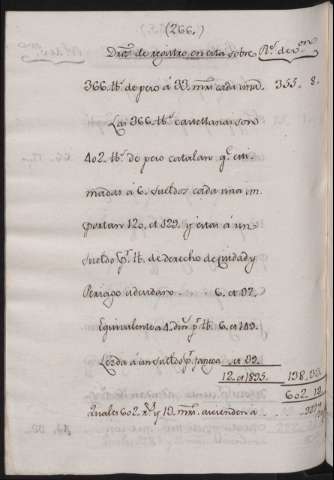 (266.)
Dros. de registro, en esta sobre Rs. de von
366. lb. de peso á 33. mrs. cada una 355. 8.
Las 366. lbs. castellanas son
402. lb. de peso catalan qe. esti-
madas á 6. sueldos cada una, im-
portan 120. et 529. y estas á un
sueldo pr. lb. de derecho de Ciudad y
Periage adeudaron 6. et 97.
Equivalente a 4. dins. pr. lb. 6. et 149.
Lezda á un sueldo pr. et 99.
12. et 1835. 138.
602. 18.
Reales 602. Rs. y 19. mrs. ascienden á